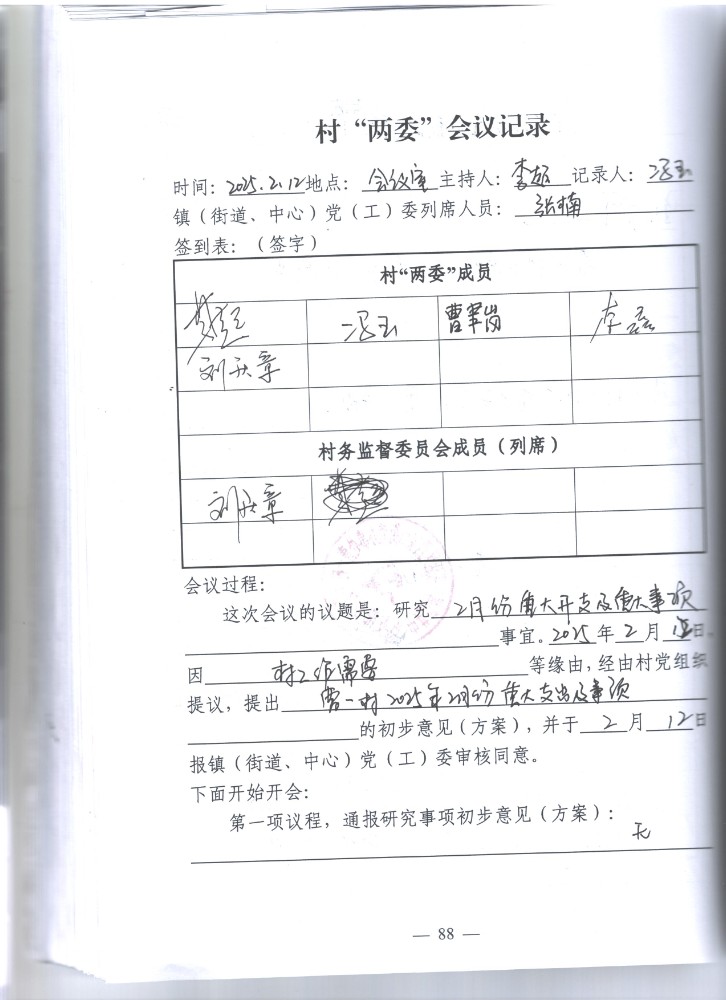 村“两委”会议记录
时间：2025.2.12地点：会议室主持人：李超记录人：冯玉
镇（街道、中心）党（工）委列席人员：张楠
签到表：（签字）
村“两委”成员
冯玉 曹军岗 李磊
刘跃章
村务监督委员会成员（列席）
刘跃章
会议过程：
这次会议的议题是：研究2月份重大开支及重大事项
事宜。2025年2月12日，
因村工作需要等缘由，经由村党组织
提议，提出曹一村2025年2月份重大支出及事项
的初步意见（方案），并于2月12日
报镇（街道、中心）党（工）委审核同意。
下面开始开会：
第一项议程，通报研究事项初步意见（方案）：
无
— 88 —